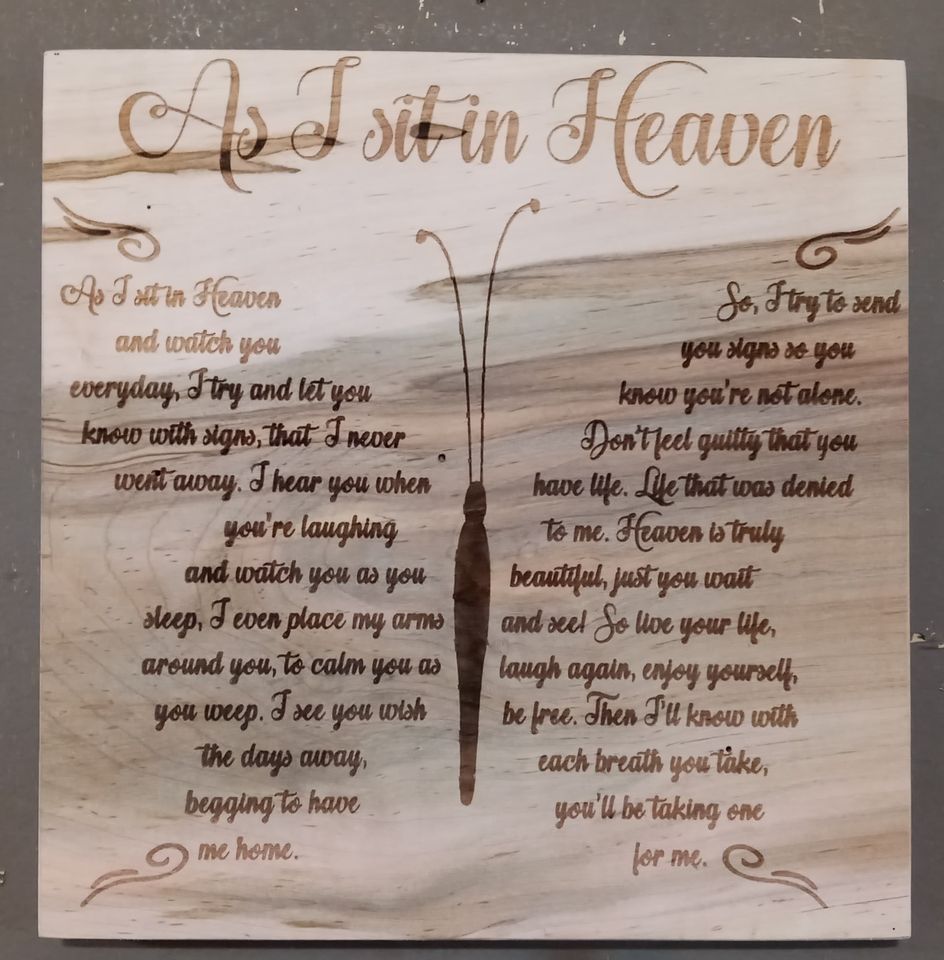 As I sit in Heaven
As I sit in Heaven
and watch you
everyday, I try and let you
know with signs, that I never
went away. I hear you when
you're laughing
and watch you as you
sleep, I even place my arms
around you, to calm you as
you weep. I see you wish
the days away,
begging to have
me home.
So, I try to send
you signs so you
know you're not alone.
Don't feel guilty that you
have life. Life that was denied
to me. Heaven is truly
beautiful, just you wait
and see! So live your life,
laugh again, enjoy yourself,
be free. Then I'll know with
each breath you take,
you'll be taking one
for me.